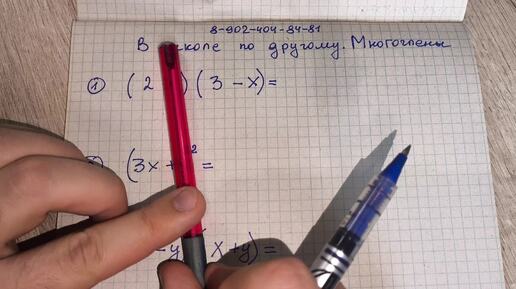 8-902-404-34-81
В по другому. Многочлены
① (2 ) (3 - x) =
(3x + ² =
- y x + y) =